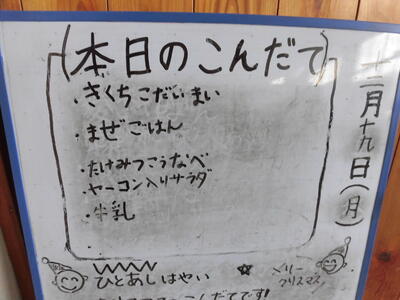 本日のこんだて
十二月十九日(月)
・きくちこだいまい
・まぜごはん
・たけみつこうなべ
・ヤーコン入りサラダ
・牛乳
ひとあしはやい
メリー
クリスマス
こんだてです!